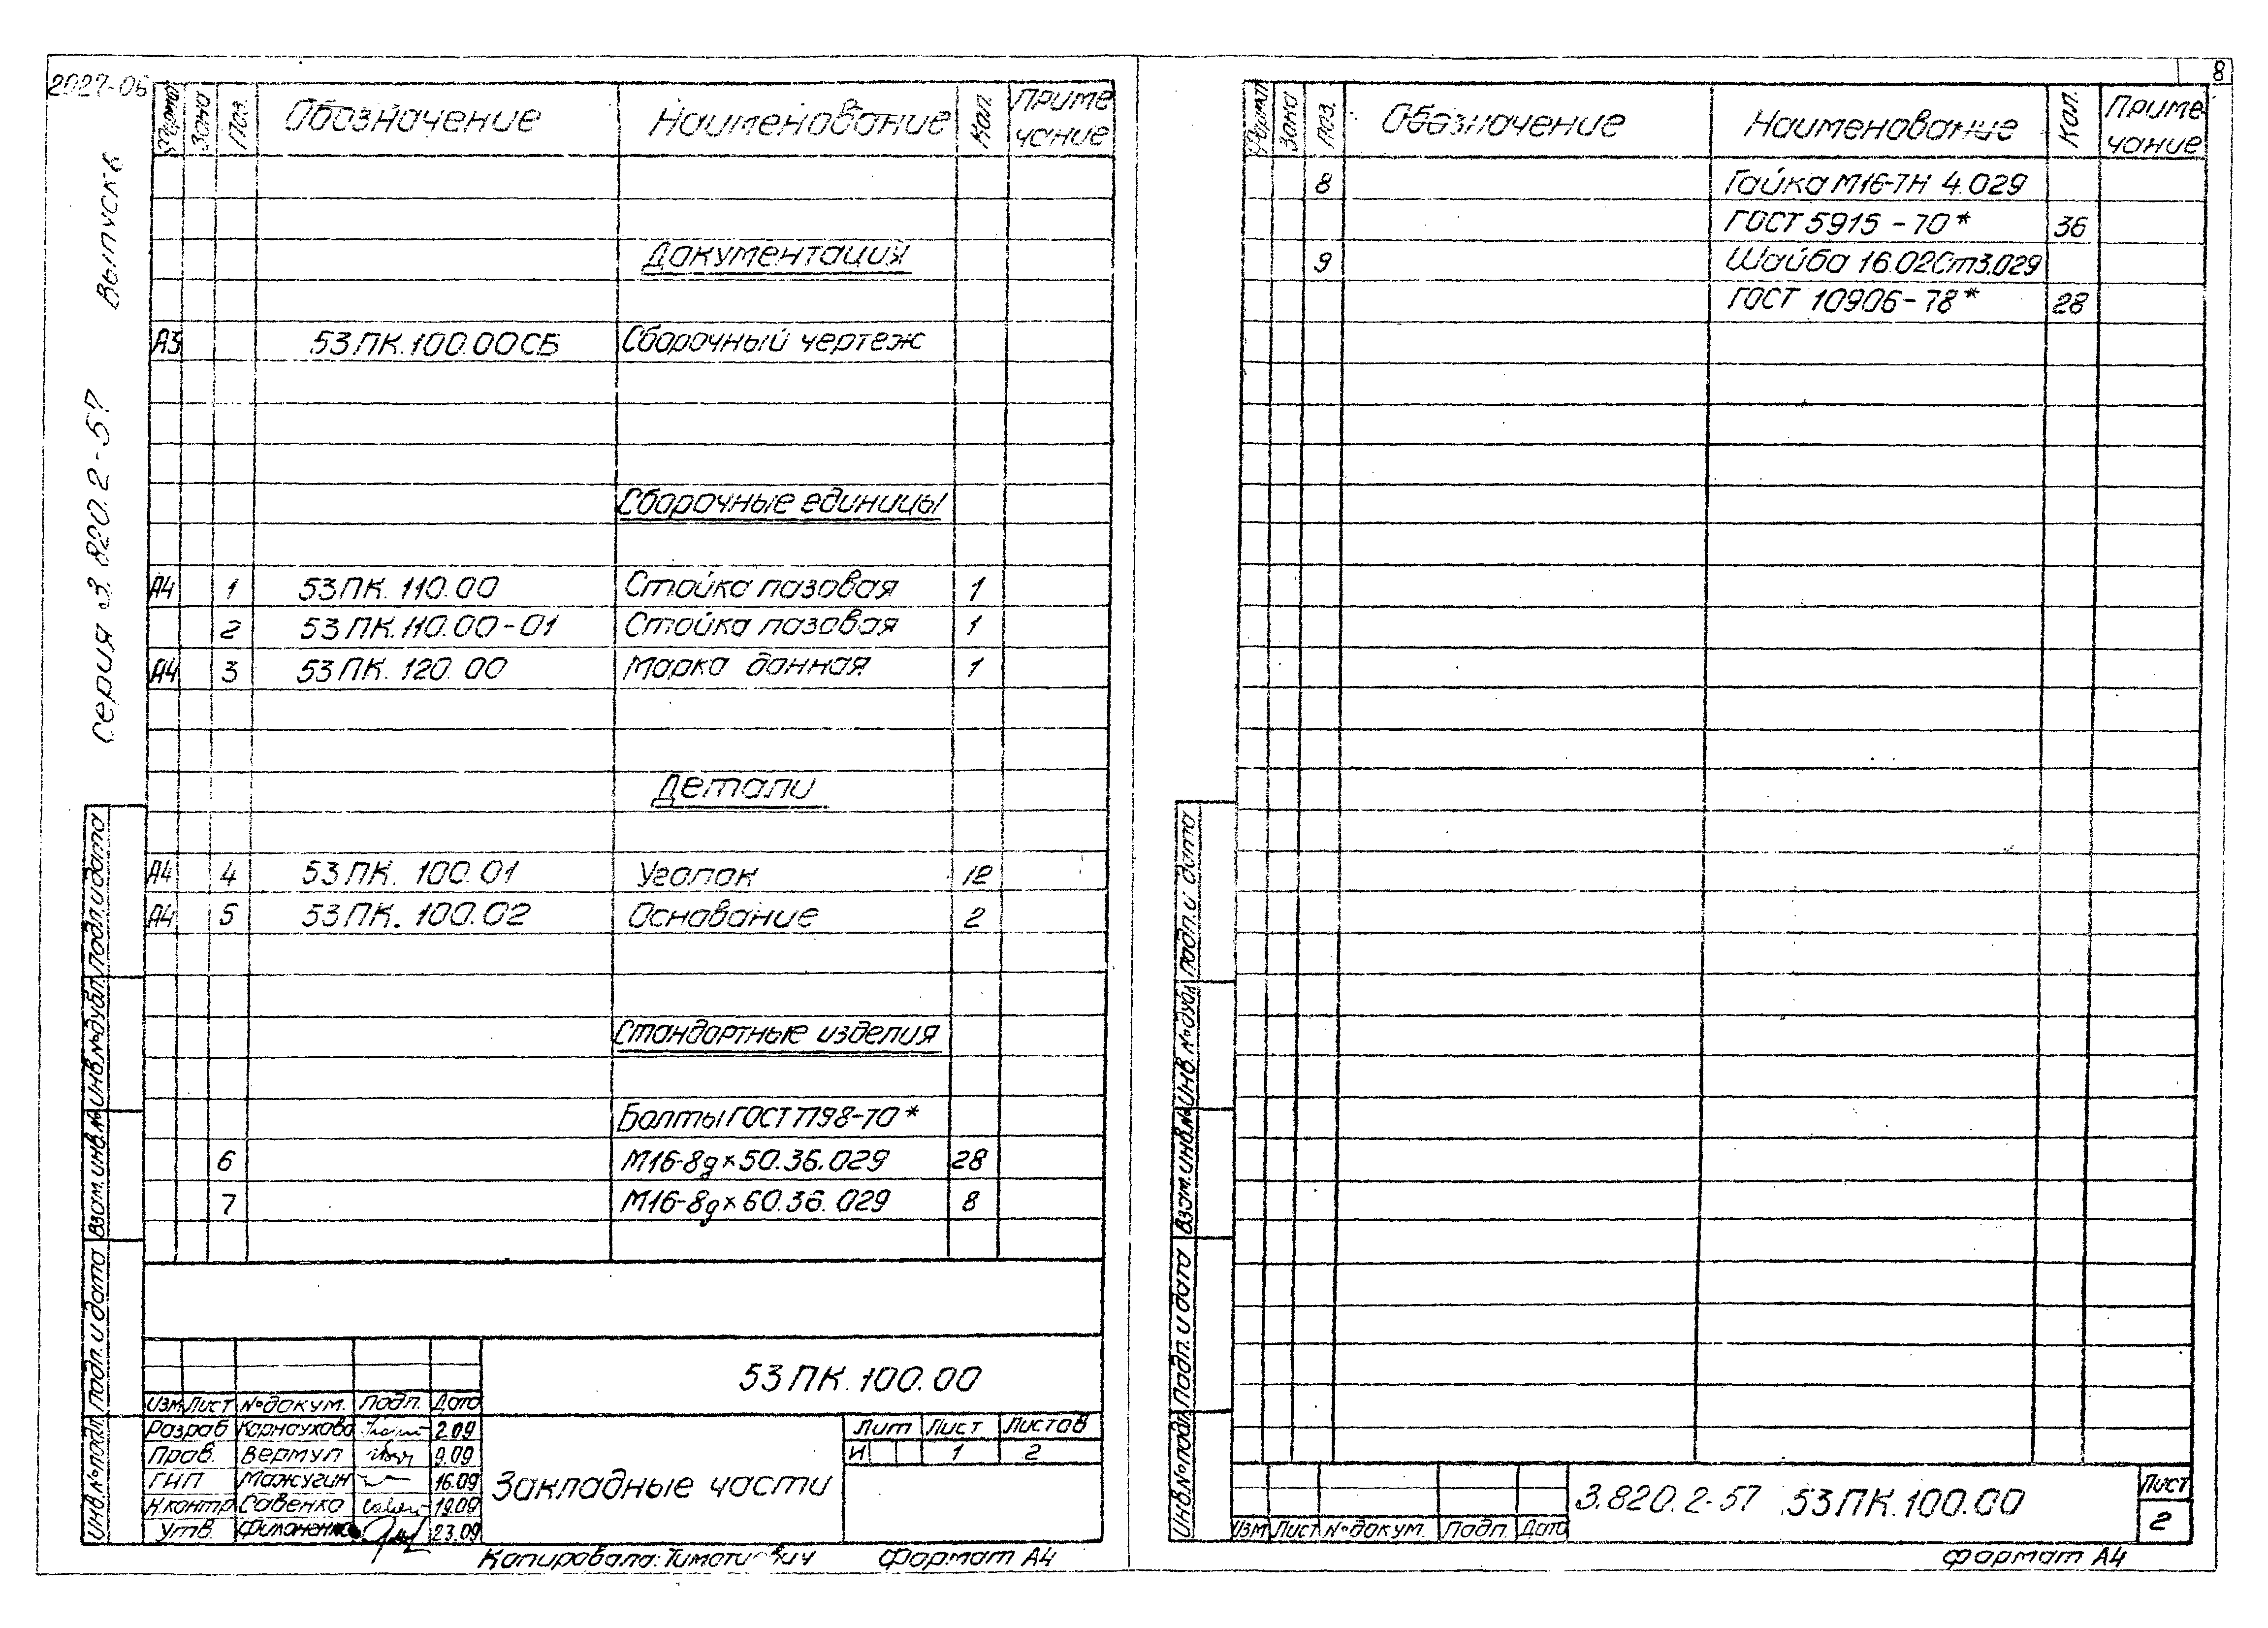 2027-06
Серия 3.820.2-57 Выпуск 6
Формат Зона Поз. Обозначение Наименование Кол. Приме чание
Документация
А3 53ПК.100.00СБ Сборочный чертеж
Сборочные единицы
А4 1 53ПК.110.00 Стойка пазовая 1
2 53ПК.110.00-01 Стойка пазовая 1
А4 3 53ПК.120.00 Марка донная 1
Детали
А4 4 53ПК.100.01 Уголок 12
А4 5 53ПК.100.02 Основание 2
Стандартные изделия
Болты ГОСТ 7798-70*
6 М16-8g×50.36.029 28
7 М16-8g×60.36.029 8
Инв.№подл. Подп. и дата Взам.инв.№ Инв.№дубл. Подп. и дата
53ПК.100.00
Изм Лист №докум. Подп. Дата
Разраб Карнаухова 2.09
Пров. Вермул 9.09
ГИП Мажугин 16.09
Н.контр Савенко 19.09
Утв. Филоненко 23.09
Закладные части
Лит Лист Листов
И 1 2
Копировала: Тимотиевич Формат А4
8
Формат Зона Поз. Обозначение Наименование Кол. Приме чание
8 Гайка М16-7Н 4.029
ГОСТ 5915-70* 36
9 Шайба 16.02Ст3.029
ГОСТ 10906-78* 28
Инв.№подл. Подп. и дата Взам.инв.№ Инв.№дубл Подп. и дата
Изм Лист №докум. Подп. Дата
3.820.2-57 53ПК.100.00
Лист
2
Формат А4